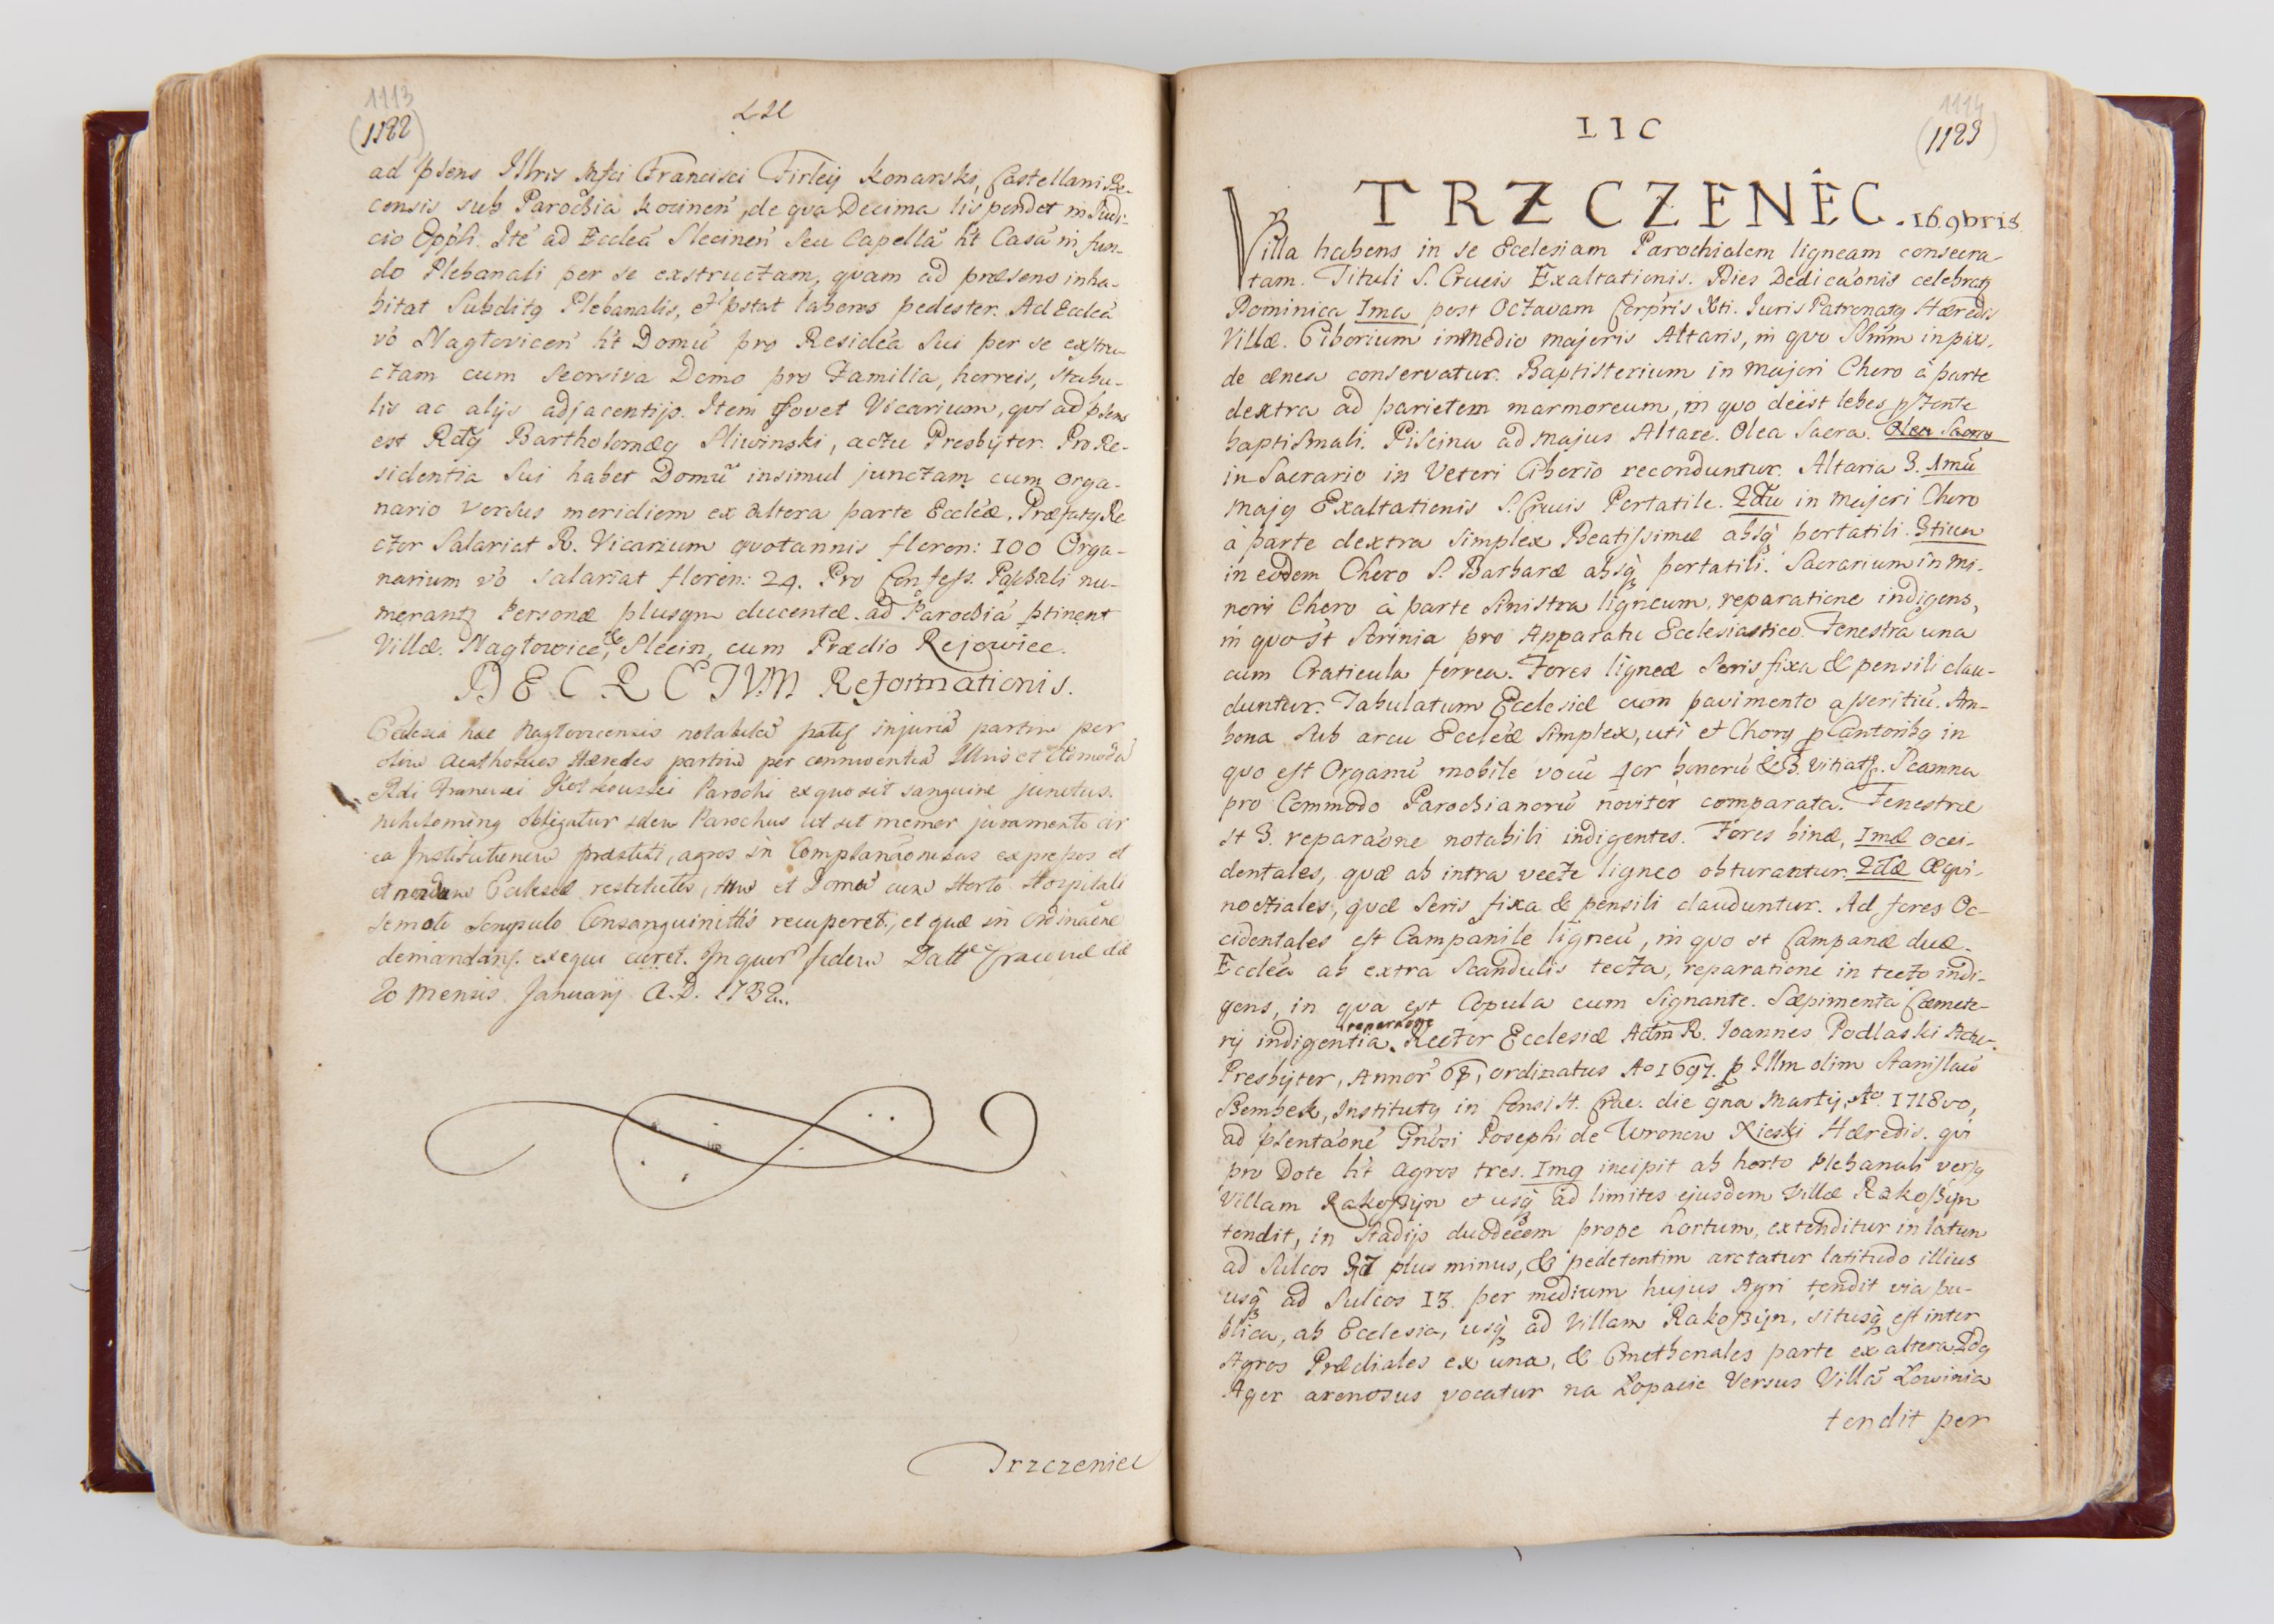 1113
(1122)
ad pſens Illris Mfci Francisci Firleij Konarski, Castellani Re-
censis sub Parochia Kocinen, de qva Decima lis pendet in Judi-
cio Offili. Ité ad Eccleá Slecinen seu Capellá ht Casá in fun-
do Plebanali per se exstructam, qvam ad præsens inha-
bitat Subditq Plebanalis, et pstat labores pedester. Ad Eccleá
vó Nagłovicen ht Domú pro Residéa Sui per se exstru-
ctam cum seorsiva Domo pro Familia, horreis, stabu-
lis ac alijs adjacentijs. Item fovet Vicarium, qvi ad pſens
est Rdq Bartholomæq Sliwinski, actu Presbyter. Pro Re-
sidentia Sui habet Domú insimul junctam cum Orga-
nario versus meridiem ex altera parte Eccléæ. Præfatq Re-
ctor Salariat R. Vicarium qvotannis floren: 100 Orga-
narium vó salariat floren: 24. Pro Confess. Paschali nu-
merantq Personæ plusqm ducentæ. ad Parochiá ptinent
Villæ. Nagłowice, & Slecin, cum Prædio Rejowiec.
DECRETVM Reformationis.
Ecclesia hæc Nagłovicensis notabilé injuriá partim per
olim Acatholicos Hæredes partim per conniventiá
Rdi Francisci Parochi ex quo sit sanguine junctus.
nihilominq obligatur idem Parochus ut sit memor juramenti cir
ca Institutionem præstiti, agros in Complanáonibus expressos et
Ecclesiæ restitutos, et Domú cum Horto Hospitali
semoto scrupulo Consangvinittis recuperet, et quæ in Ordináóne
demandans. exequi curet. In quor fidem Datt Cracoviæ die
20 Mensis Januarij A.D. 1732.
Trzczeniec
LIC
1114
(1123)
TRZCZENÉC. 16. 9bris
Villa habens in se Ecclesiam Parochialem ligneam consecra-
tam. Tituli S. Crucis Exaltationis. Dies Dedicáonis celebratq
Dominica Ima post Octavam Corpris Xti. Juris Patronatq Hæredis
Villæ. Ciborium in medio majoris Altaris, in qvo SSmm in pixi-
de ænea conservatur. Baptisterium in majori Choro á parte
dextra ad parietem marmoreum, in quo déést lebes pſtente
baptismali. Piscina ad majus Altare. Olea Sacra. Olea Sacra
in Sacrario in Veteri Ciborio reconduntur. Altaria 3. 1mú
majq Exaltationis S. Crucis Portatile. 2dú in majori Choro
á parte dextra simplex Beatissimæ absq portatili. 3tium
in eodem Choro S. Barbaræ absq portatili. Sacrarium in mi-
nori Choro á parte sinistra ligneum, reparatione indigens,
in qvo st Scrinia pro Apparatu Ecclesiastico. Fenestra una
cum Craticula ferrea. Fores ligneæ Seris fixa & pensili clau-
duntur. Tabulatum Ecclesiæ cum pavimento asseritiú. Am-
bona Sub arcu Eccléæ Simplex, uti et Chorq p Cantoribq in
qvo est Organú mobile vocú 4or bonorú & 3. vitiatq. Scamna
pro Commodo Parochianorú noviter comparata. Fenestræ
st 3. reparáone notabili indigentes. Fores binæ, Imæ occi-
dentales, qvæ ab intra vecte ligneo obturantur. 2dæ Æqvi-
noctiales, qvæ Seris fixa & pensili clauduntur. Ad fores Oc-
cidentales est Campanile ligneú, in quo st Campanæ duæ.
Eccléa ab extra Scandulis tecta, reparatione in tecto indi-
gens, in qva est Copula cum Signante. Sæpimenta Cæmete-
rij indigentia reparáone. Rector Ecclesiæ Adm R. Joannes Podlaski Actu
Presbyter, Annor 68, ordinatus Ao 1697. p Illm olim Stanislaú
Bembek, Institutq in Consist. Crac. die 9na Martij Ao 1718vo,
ad pſentáoné Gnósi Josephi de Wronow Xieski Hæredis. qvi
pro Dote ht agros tres. Imq incipit ab horto Plebanali versq
Villam Rakoszyn et usq ad limites ejusdem Villæ Rakoszyn
tendit, in stadijs duodecem prope hortum, extenditur in latum
ad Sulcos 37 plus minus, & pedetentim arctatur latitudo illius
usq ad Sulcos 13. per medium hujus Agri tendit via pu-
blica, ab Ecclesia, usq ad Villam Rakoszyn, situsq est inter
Agros Prædiales ex una, & Cmethonales parte ex altera 2dq
Ager arenosus vocatur na Łopacie versus Villá Łowinia
tendit per